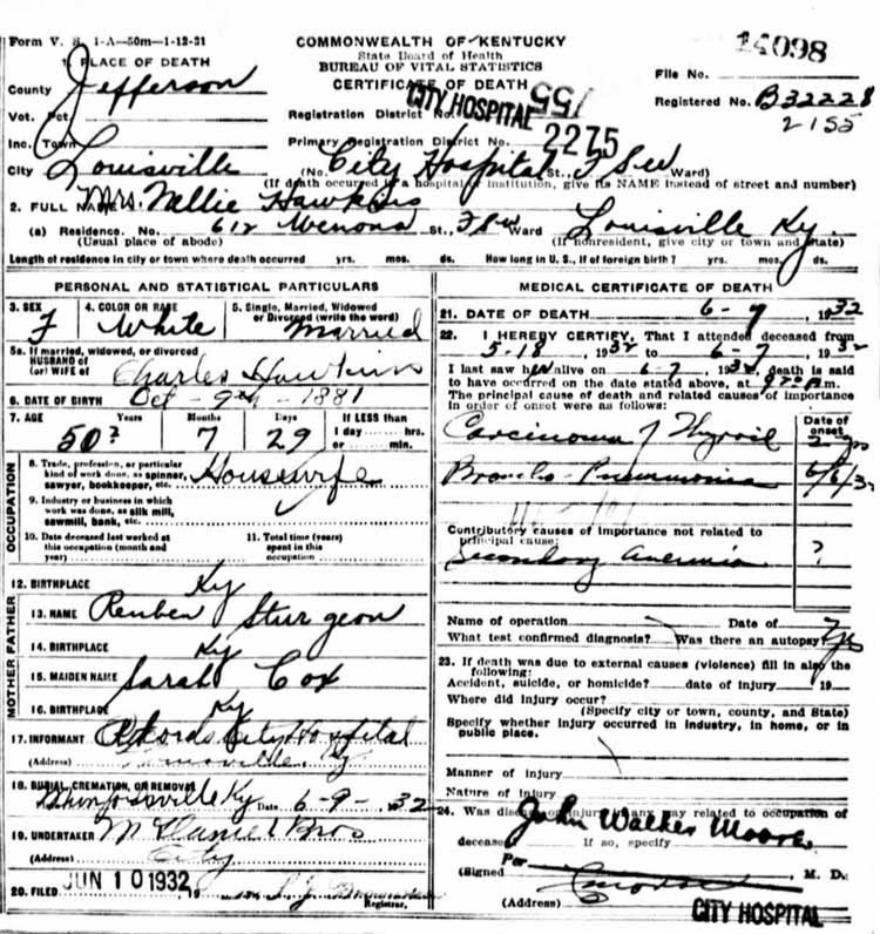 Form V. S. 1-A—50m—1-12-31
COMMONWEALTH OF KENTUCKY
State Board of Health
BUREAU OF VITAL STATISTICS
CERTIFICATE OF DEATH
File No. 14098
Registered No. B32228
2155
1. PLACE OF DEATH
County Jefferson
CITY HOSPITAL
Vot. Pct.
Registration District No. 755
Inc. Town
Primary Registration District No. 2275
City Louisville (No. City Hospital St., Ward)
(If death occurred in a hospital or institution, give its NAME instead of street and number)
2. FULL NAME Mrs. Nellie Hawkins
(a) Residence. No. 612 Wenona St., Ward Louisville Ky.
(Usual place of abode) (If nonresident, give city or town and state)
Length of residence in city or town where death occurred yrs. mos. ds. How long in U. S., if of foreign birth? yrs. mos. ds.
PERSONAL AND STATISTICAL PARTICULARS
3. SEX F
4. COLOR OR RACE White
5. Single, Married, Widowed or Divorced (write the word) Married
5a. If married, widowed, or divorced
HUSBAND of
(or) WIFE of Charles Hawkins
6. DATE OF BIRTH Oct - 9th - 1881
7. AGE Years Months Days If LESS than
50? 7 29 1 day hrs.
or min.
OCCUPATION
8. Trade, profession, or particular
kind of work done, as spinner,
sawyer, bookkeeper, etc. Housewife
9. Industry or business in which
work was done, as silk mill,
sawmill, bank, etc.
10. Date deceased last worked at
this occupation (month and
year)
11. Total time (years)
spent in this
occupation
12. BIRTHPLACE Ky
FATHER
13. NAME Reuben Sturgeon
14. BIRTHPLACE Ky
MOTHER
15. MAIDEN NAME Sarah Cox
16. BIRTHPLACE Ky
17. INFORMANT Records City Hospital
(Address) Louisville, Ky
18. BURIAL, CREMATION, OR REMOVAL
Ky Date 6-9-32
19. UNDERTAKER McDaniel Bros
(Address) City
20. FILED JUN 10 1932, 19
Registrar.
MEDICAL CERTIFICATE OF DEATH
21. DATE OF DEATH 6-7, 1932
22. I HEREBY CERTIFY, That I attended deceased from
5-18, 1932 to 6-7, 1932
I last saw her alive on 6-7, 1932, death is said
to have occurred on the date stated above, at m.
The principal cause of death and related causes of importance
in order of onset were as follows:
Date of onset
Carcinoma of Thyroid 2 yrs
Broncho-Pneumonia 6/6/32
Contributory causes of importance not related to
principal cause:
Secondary anemia ?
Name of operation Date of
What test confirmed diagnosis? Was there an autopsy? Yes
23. If death was due to external causes (violence) fill in also the
following:
Accident, suicide, or homicide? date of injury 19
Where did injury occur?
(Specify city or town, county, and State)
Specify whether injury occurred in industry, in home, or in
public place.
Manner of injury
Nature of injury
24. Was disease or injury in any way related to occupation of
deceased? If so, specify
John Walker Moore
Per
(Signed) , M. D.
(Address)
CITY HOSPITAL